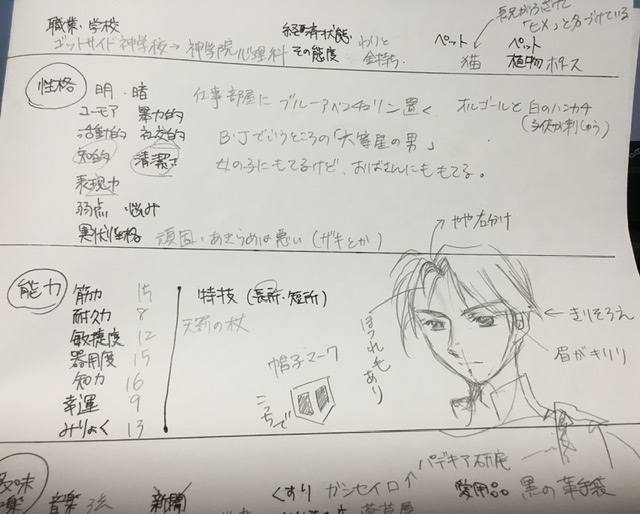 職業・学校
ゴットサイド神学校→神学院心理科
経済状態
その態度
わりと
金持ち.
ペット
猫
ペット
植物 ポトス
「ヒメ」と名づけている
性格
明・暗
ユーモア 暴力的
活動的 社交的
知的 清潔さ
表現力
弱点・悩み
実状性格 頑固・あきらめは悪い(ザキとか)
仕事部屋に ブルーアベンチュリン置く
オルゴールと白のハンカチ
B・Jでいうところの「六等星の男」
女の子にもてるけど、おばさんにももてる。
能力
筋力 15
耐久力 8
敏捷度 12
器用度 15
知力 16
幸運 9
みりょく 13
特技(長所・短所)
天罰の杖
帽子マーク
こっちで
やや右分け
ほつれもあり
きりそろえ
眉がキリリ
パデキア研究
愛用品 黒の革手袋
趣味
音楽 弦
新聞
くすり ガンセイロ